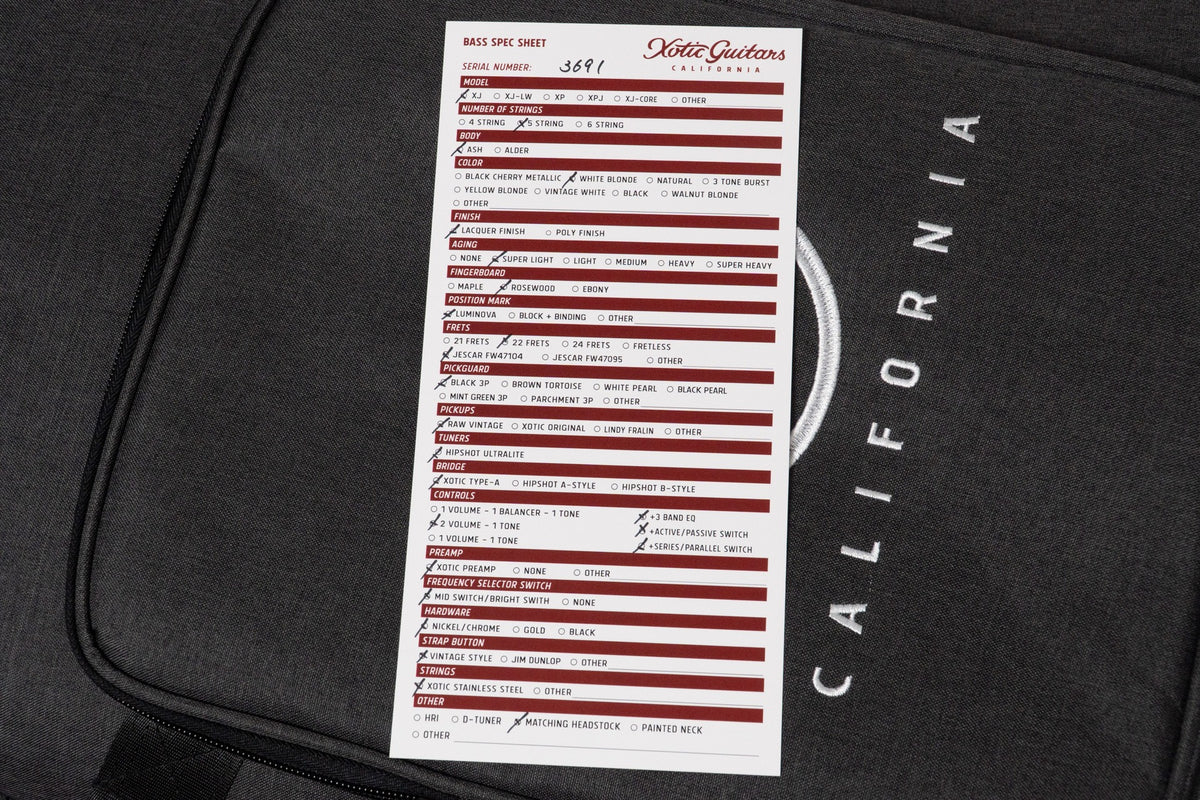 BASS SPEC SHEET
Xotic Guitars
CALIFORNIA
SERIAL NUMBER: 3691
MODEL
XJ XJ-LW XP XPJ XJ-CORE OTHER
NUMBER OF STRINGS
4 STRING 5 STRING 6 STRING
BODY
ASH ALDER
COLOR
BLACK CHERRY METALLIC WHITE BLONDE NATURAL 3 TONE BURST
YELLOW BLONDE VINTAGE WHITE BLACK WALNUT BLONDE
OTHER
FINISH
LACQUER FINISH POLY FINISH
AGING
NONE SUPER LIGHT LIGHT MEDIUM HEAVY SUPER HEAVY
FINGERBOARD
MAPLE ROSEWOOD EBONY
POSITION MARK
LUMINOVA BLOCK + BINDING OTHER
FRETS
21 FRETS 22 FRETS 24 FRETS FRETLESS
JESCAR FW47104 JESCAR FW47095 OTHER
PICKGUARD
BLACK 3P BROWN TORTOISE WHITE PEARL BLACK PEARL
MINT GREEN 3P PARCHMENT 3P OTHER
PICKUPS
RAW VINTAGE XOTIC ORIGINAL LINDY FRALIN OTHER
TUNERS
HIPSHOT ULTRALITE
BRIDGE
XOTIC TYPE-A HIPSHOT A-STYLE HIPSHOT B-STYLE
CONTROLS
1 VOLUME - 1 BALANCER - 1 TONE +3 BAND EQ
2 VOLUME - 1 TONE +ACTIVE/PASSIVE SWITCH
1 VOLUME - 1 TONE +SERIES/PARALLEL SWITCH
PREAMP
XOTIC PREAMP NONE OTHER
FREQUENCY SELECTOR SWITCH
MID SWITCH/BRIGHT SWITH NONE
HARDWARE
NICKEL/CHROME GOLD BLACK
STRAP BUTTON
VINTAGE STYLE JIM DUNLOP OTHER
STRINGS
XOTIC STAINLESS STEEL OTHER
OTHER
HRI D-TUNER MATCHING HEADSTOCK PAINTED NECK
OTHER
CALIFORNIA